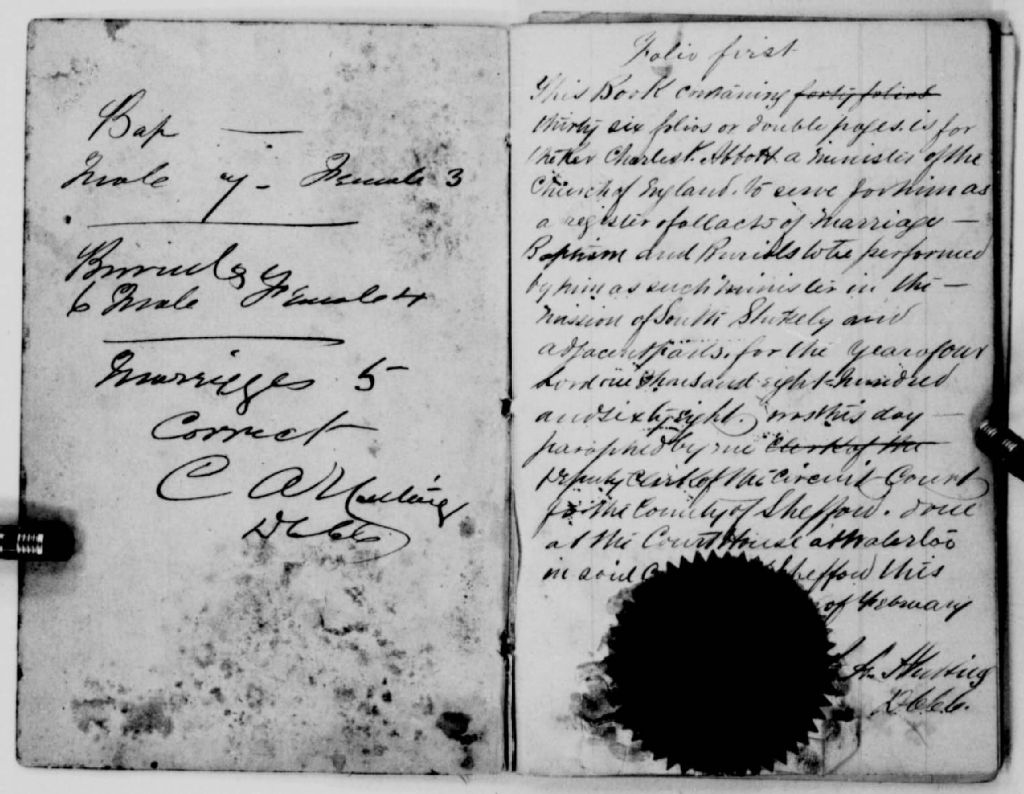 Bap —
Male 7 - Female 3
Burials
6 Male Female 4
Marriages 5
Correct
C A
D C C C
Folio first
This Book containing forty folios
thirty six folios or double pages. is for
the Rev Charles P. Abbott a minister of the
Church of England. to serve for him as
a register of all acts of Marriage —
Baptism and Burials to be performed
by him as such minister in the —
mission of South Stukely and
adjacent parts. for the year of our
Lord one thousand eight hundred
and sixty eight. was this day —
paraphed by me Clerk of the
Deputy Clerk of the Circuit Court
for the County of Shefford. done
at the Court House at Waterloo
in said Shefford this
of February
D C C C.